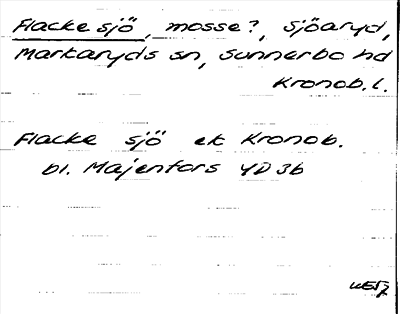 Flacke sjö, mosse?, Sjöaryd,
Markaryds sn, Sunnerbo hd
Kronob. l.
Flacke sjö ek Kronob.
bl. Majenfors 4D3b